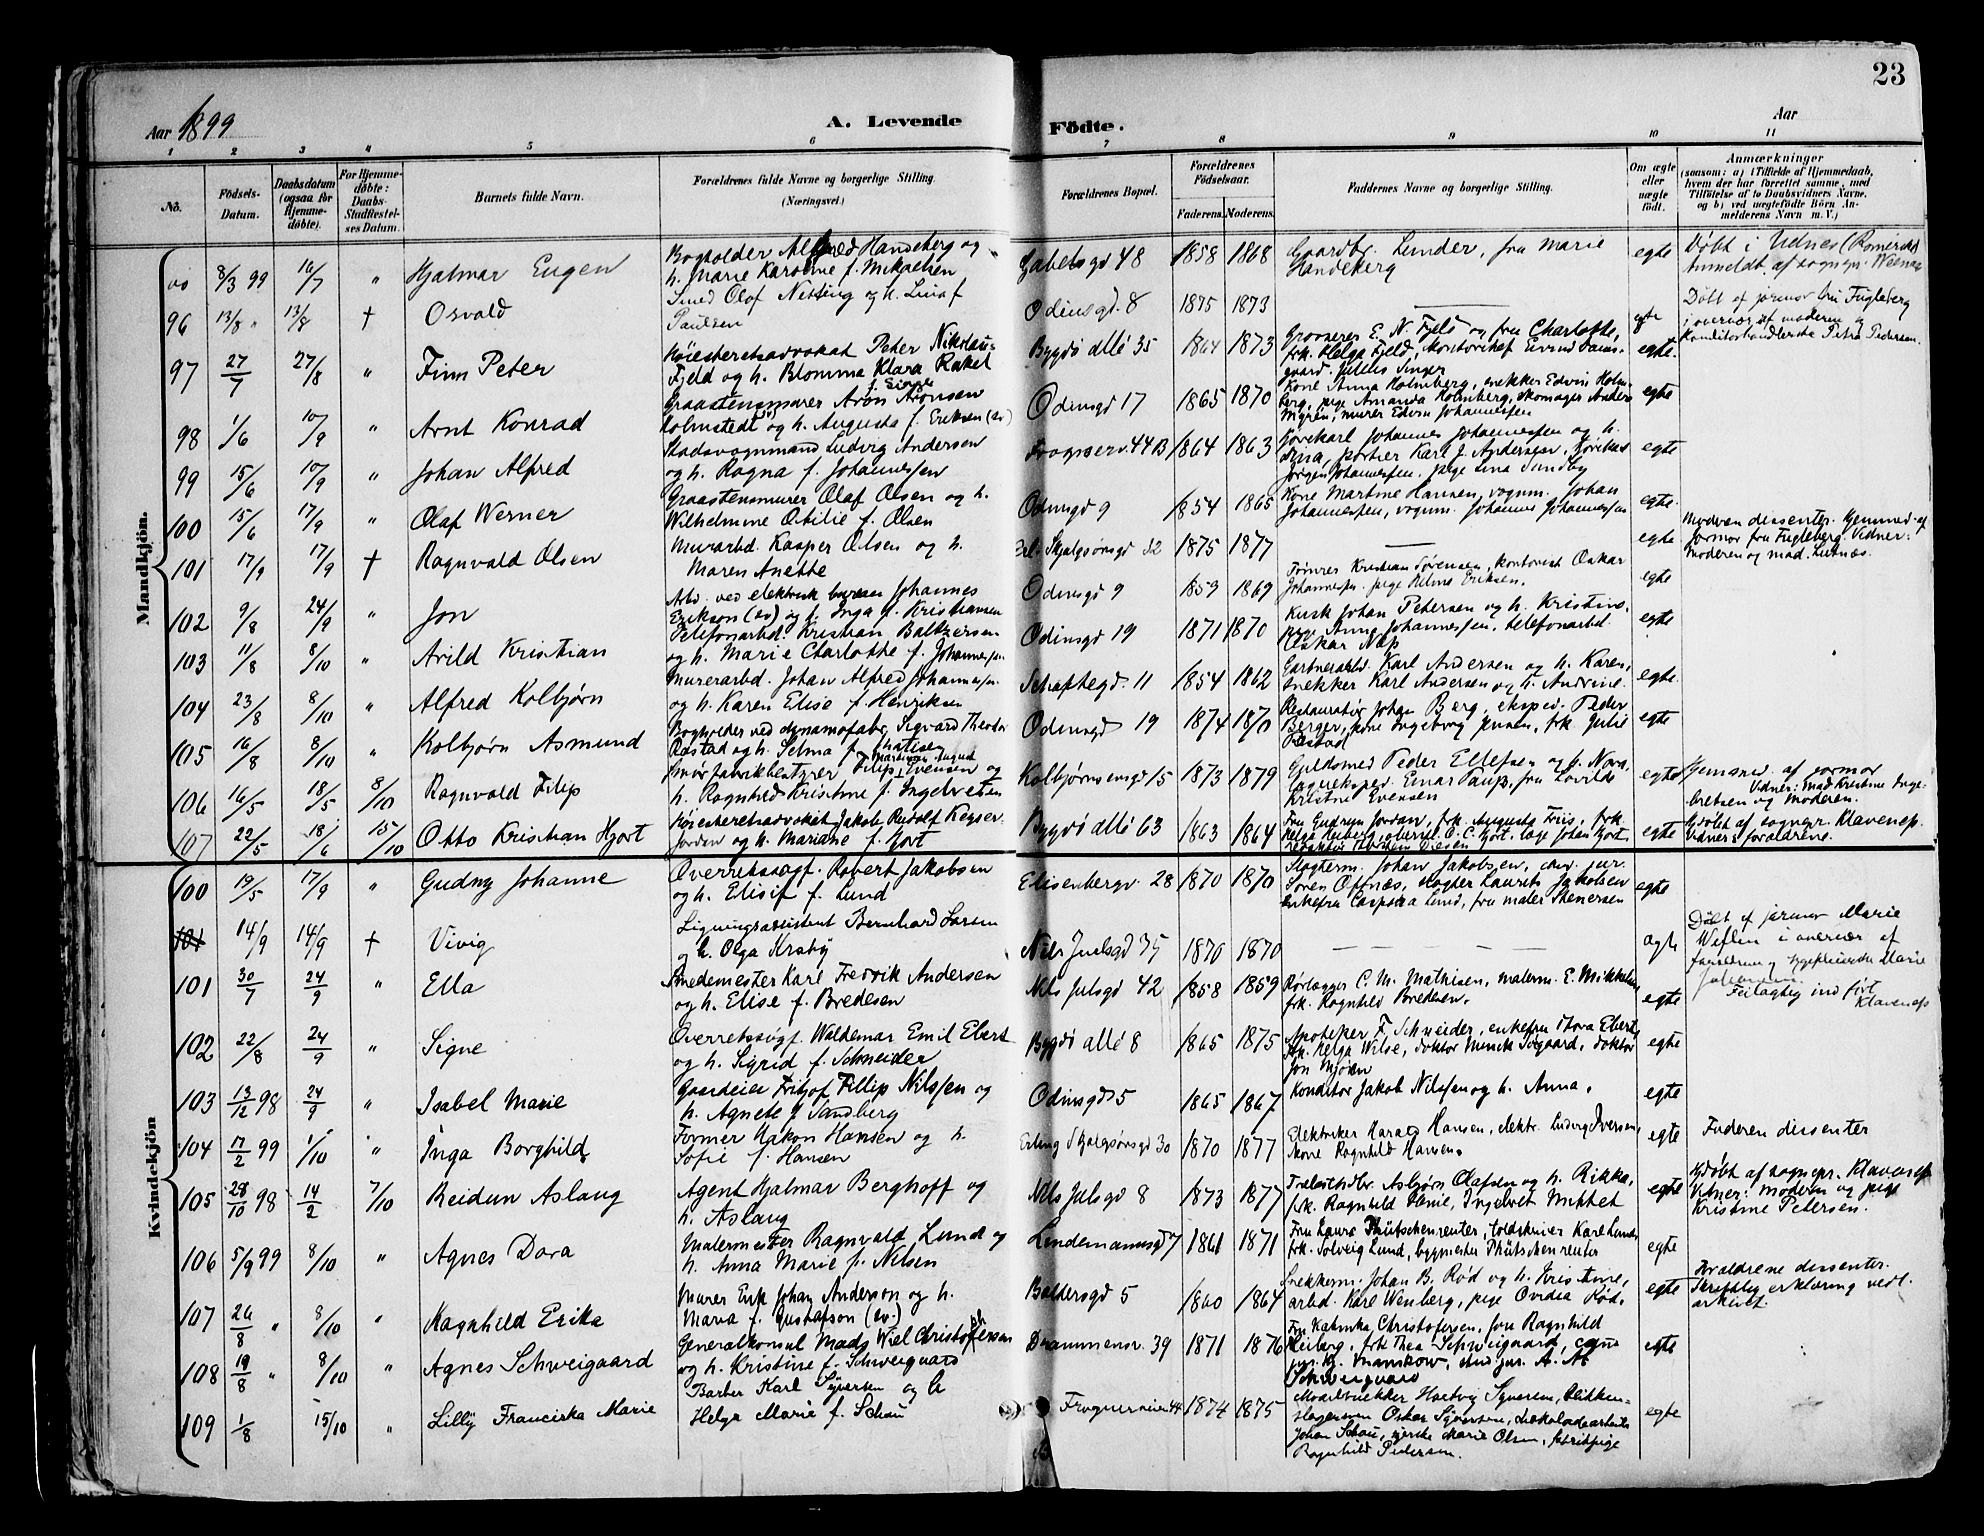 23
Aar 1899
A. Levende Födte.
Aar
1 2 3 4 5 6 7 8 9 10 11
No.
Födsels-Datum.
Daabsdatum (ogsaa for Hjemmedøbte).
For Hjemmedøbte: Daabs-Stadfæstelses Datum.
Barnets fulde Navn.
Forældrenes fulde Navne og borgerlige Stilling. (Næringsvei.)
Forældrenes Bopæl.
Forældrenes Födselsaar.
Faderens. Moderens.
Faddernes Navne og borgerlige Stilling.
Om ægte eller uægte født.
Anmærkninger
(saasom: a) i Tilfælde af Hjemmedaab, hvem der har forrettet samme, med Tilföielse af to Daabsvidners Navne, og b) ved uægtefødte Börn Anmelderens Navn m. V.)
Mandkjön.
8/3 99 16/7 " Hjalmar Eugen
Bogholder Alfred Handeberg og
h. Marie Karoline f. Mikaelsen
Gabelsgd 48 1858 1868
Gaardbr. Lunder, fru Marie
Handeberg
egte
Døbt i Udnes (Romerike)
Anmeldt af sognepr.
96 13/8 " 13/8 † Osvald
Smed Olof Netting og h. Lina f.
Paulsen
Odinsgd. 8 1875 1873
egte
Døbt af jormor fru Fugleberg
i overvær af moderen og
Petra Pedersen.
97 27/7 27/8 " Finn Peter
Høiesteretsadvokat Peter Nikolaus
Fjeld og h. Blomma Klara Rakel
f. Singer
Bygdø allé 35 1864 1873
Grosserer E. N. Fjeld og fru Charlotte,
frk. Helga Fjeld, kontorchef Eivind
Julius Singer
egte.
98 1/6 10/9 " Arnt Konrad
Graastensmurer Aron Aronsen
Holmstedt og h. Augusta f. Eriksen (sv)
Odinsgd 17 1865 1870
Kone Anna Holmberg, snekker Edvin Holmberg, pige Amanda Holmberg, skomager Anders
murer Edvin Johannessen
egte
99 15/6 10/9 " Johan Alfred
Stadsvognmand Ludvig Andersen
og h. Ragna f. Johannessen
Frognerv. 44 B 1864 1863
Johannes Johannessen og h.
portier Karl J. Andersen,
Jørgen Johannessen, pige Lina Sundby
egte
100 15/6 17/9 " Olaf Werner
Graastensmurer Olaf Olsen og h.
Wilhelmine Otilie f. Olsen
Odinsgd 9 1854 1865
Kone Martine Hansen, vognm. Johan
Johannessen, vognm. Johannes Johannessen
egte.
101 17/9 17/9 † Ragnvald Olsen
Murarbd. Kasper Olsen og h.
Maren Anette
Skjalgsønsgd 32 1875 1877
egte
Moderen dissenter. Hjemmed. af
jormor fru Fugleberg. Vidner:
Moderen og mad. Lutnæs.
102 9/8 24/9 " Jon
Arb. ved elektrisk bureau Johannes
Erikson (sv) og h. Inga f. Kristiansen
Odinsgd 9 1859 1869
Kristian Sørensen, kontorist Oskar
Johannessen, pige Eriksen.
egte
103 11/8 8/10 " Arild Kristian
Telefonarbd. Kristian Baltzersen
og h. Marie Charlotte f. Johannessen
Odinsgd 19 1871 1870
Kusk Johan Petersen og h. Kristine.
Anna Johannessen, telefonarbd.
Oskar
egte
104 23/8 8/10 " Alfred Kolbjørn
Murerarbd. Johan Alfred Johannessen
og h. Karen Elise f. Henriksen
Schaftegd. 11 1854 1862
Gartnerarbd. Karl Andersen og h. Karen,
snekker Karl Andersen og h. Andrine.
egte.
105 16/8 8/10 " Kolbjørn Asmund
Bogholder ved dynamofabr. Sigvard Theodor
Røstad og h. Selma f.
Odinsgd 19 1874 1870
Restauratør Johan Berg, eksped. Peder
Berger, kone Ingeborg Jensen, frk. Julie
Røstad
egte
106 16/5 18/5 8/10 Ragnvald Filip
Smørfabrikbestyrer Filip Evensen og
h. Ragnhild Kristine f. Ingebretsen
Kolbjørnsensgd 5 1873 1879
Guldsmed Peder Ellefsen og h. Nora,
Einar fru Lovilde
Kristine Evensen
egte
Hjemmed. af jormor
Vidner: mad Kristine Ingebretsen og Moderen.
107 22/5 18/6 15/10 Otto Kristian Hjort
Høiesteretsadvokat Jakob Rudolf Keyser
Jordan og h. Mariane f. Hjort
Bygdø allé 63 1863 1864
Fru Gudrun Jordan, frk. Augusta Friis, frk.
Helga læge Johan Hjort
egte
Hjdøbt af sognepr. Klavenes.
Vidner: forældrene.
Kvindekjön
100 19/5 17/9 " Gudny Johanne
Overretssagf. Robert Jakobsen
og h. Elisif f. Lund
Elisenbergv. 28 1870 1870
Slagterm. Johan Jakobsen, cand. jur.
Søren Ofnæs, slagter Laurits Jakobsen
enkefru Caspara Lund, fru maler
egte
101 14/9 14/9 † Vivig
Ligningsassistent Bernhard Larsen
og h. Olga Kraby
Niels Juelsgd 35 1870 1870
egte
Døbt af jormor Marie
Weflen i overvær af
forældrene og Marie
Johannessen.
Feilagtig ind ført
Klavenes
101 30/7 24/9 " Ella
Smedemester Karl Fredrik Andersen
og h. Elise f. Bredesen
Nils Julsgd 42 1858 1859
Rørlægger C. M. Mathisen, malerm. E. Mikkelsen
frk. Ragnhild Bredesen.
egte
102 22/8 24/9 " Signe
Overretssagf. Waldemar Emil Ebert
og h. Sigrid f. Schneider
Bygdø allé 8 1865 1875
Apotheker F. Schneider, enkefru Thora Ebert,
frk. Helga Wilse, doktor Minick doktor
Jon Mjøen
egte
103 13/2 98 24/9 " Isabel Marie
Gaardeier Fritjof Fillip Nilssen og
h. Agnete f. Sandberg
Odinsgd 5 1865 1867
Konditor Jakob Nilssen og h. Anna.
egte
104 17/2 99 1/10 " Inga Borghild
Former Hakon Hansen og h.
Sofie f. Hansen
Erling Skjalgsønsgd 30 1870 1877
Elektriker Harald Hansen, elektr. Ludvig Iversen,
kone Ragnhild Hansen.
egte
Faderen dissenter
105 28/10 98 14/2 7/10 Reidun Aslaug
Agent Hjalmar Berghoff og
h. Aslaug
Nils Julsgd 8 1873 1877
Asbjørn Olafsen og h. Rikka,
frk. Ragnhild Henie, Ingelvet
egte
Hjdøbt af sognepr. Klavenes
Vidner: Moderen og pige
Kristine Petersen.
106 5/9 99 8/10 " Agnes Dora
Malermester Ragnvald Lund og
h. Anna Marie f. Nilsen
Lindemannsgd 7 1861 1871
Fru Laura Phützchenreuter, toldskriver Karl Lund,
frk. Solveig Lund, bygmester Phützchenreuter
egte
107 26/8 " 8/10 " Ragnhild Erika
Murer Erik Johan Anderson og h.
Maria f. Gustafson (sv.)
Baldersgd 5 1860 1864
Snekkerm. Johan B. Rød og h. Kristine,
arbd. Karl Wenberg, pige Ovidia Rød.
egte
Forældrene dissenter.
Skriftlig erklæring vedl.
arkivet.
108 19/8 " 8/10 " Agnes Schweigaard
Generalkonsul Mads Wiel Christophersen
og h. Kristine f. Schweigaard
Drammensv. 39 1871 1876
Fru Kathinka Christofersen, fru Ragnhild
Heiberg, frk Thea Schweigaard, cand
jur. Kj. stud. jur. A. M.
Schweigaard
egte
109 1/8 15/10 " Lilly Franciska Marie
Barber Karl Syversen og h
Helga Marie f. Schau
Frognerveien 44 1874 1875
Modelsnekker Hartvig Syversen, Blikkenslagersvn Oskar Syversen, chokoladearbeider
Johan Schau, syerske Marie Olsen, fabrikpige
Ragnhild Pedersen.
egte